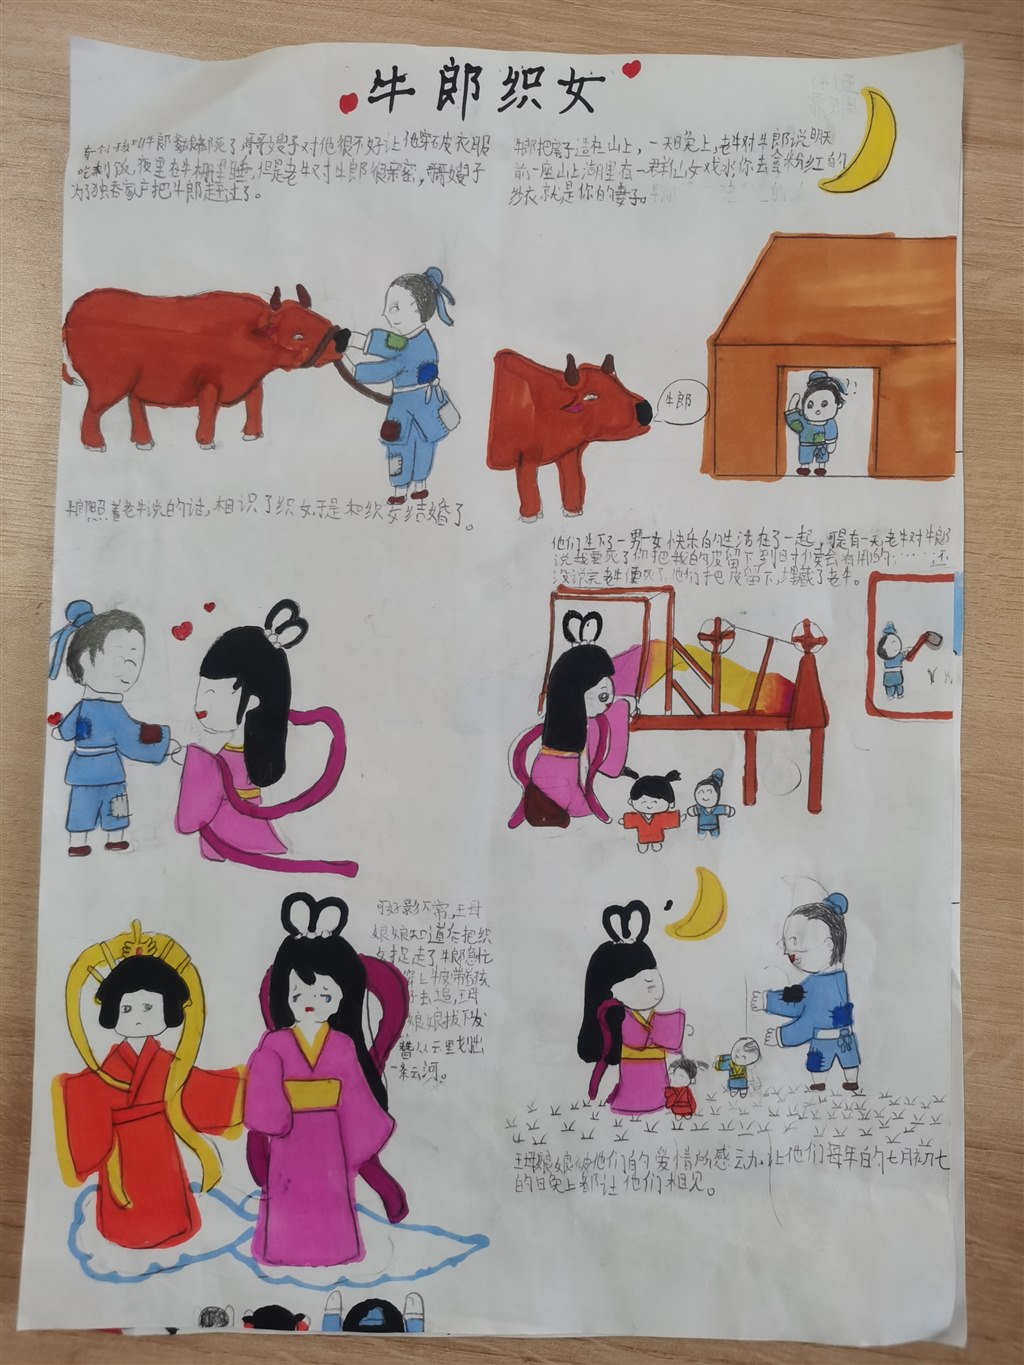 牛郎织女
牛郎爹娘都死了哥哥嫂子对他很不好让他穿衣服
吃剩饭,夜里在牛棚里睡,但是老牛对牛郎很亲密,哥嫂子
为了独吞家产把牛郎赶过了。
牛郎把房子造在山上,一天晚上,老牛对牛郎说明天
前一座山上湖里有一群仙女戏水你去拿粉红的
纱衣就是你的妻子。
牛郎
牛郎照着老牛说的话,相识了织女于是和织女结婚了。
他们生下了一男一女快乐的生活在了一起,可是有一天老牛对牛郎
说我要死了你把我的皮留下到时候会有用的……还
没说完老牛便死了他们把皮留下,埋藏了老牛。
可好影不常,王母
娘娘知道后把织
女捉走了牛郎急忙
穿上牛皮带着孩
子去追,王母
娘娘拔下发
簪从云里划出
一条云河。
王母娘娘被他们的爱情所感动让他们每年的七月初七
的晚上都让他们相见。